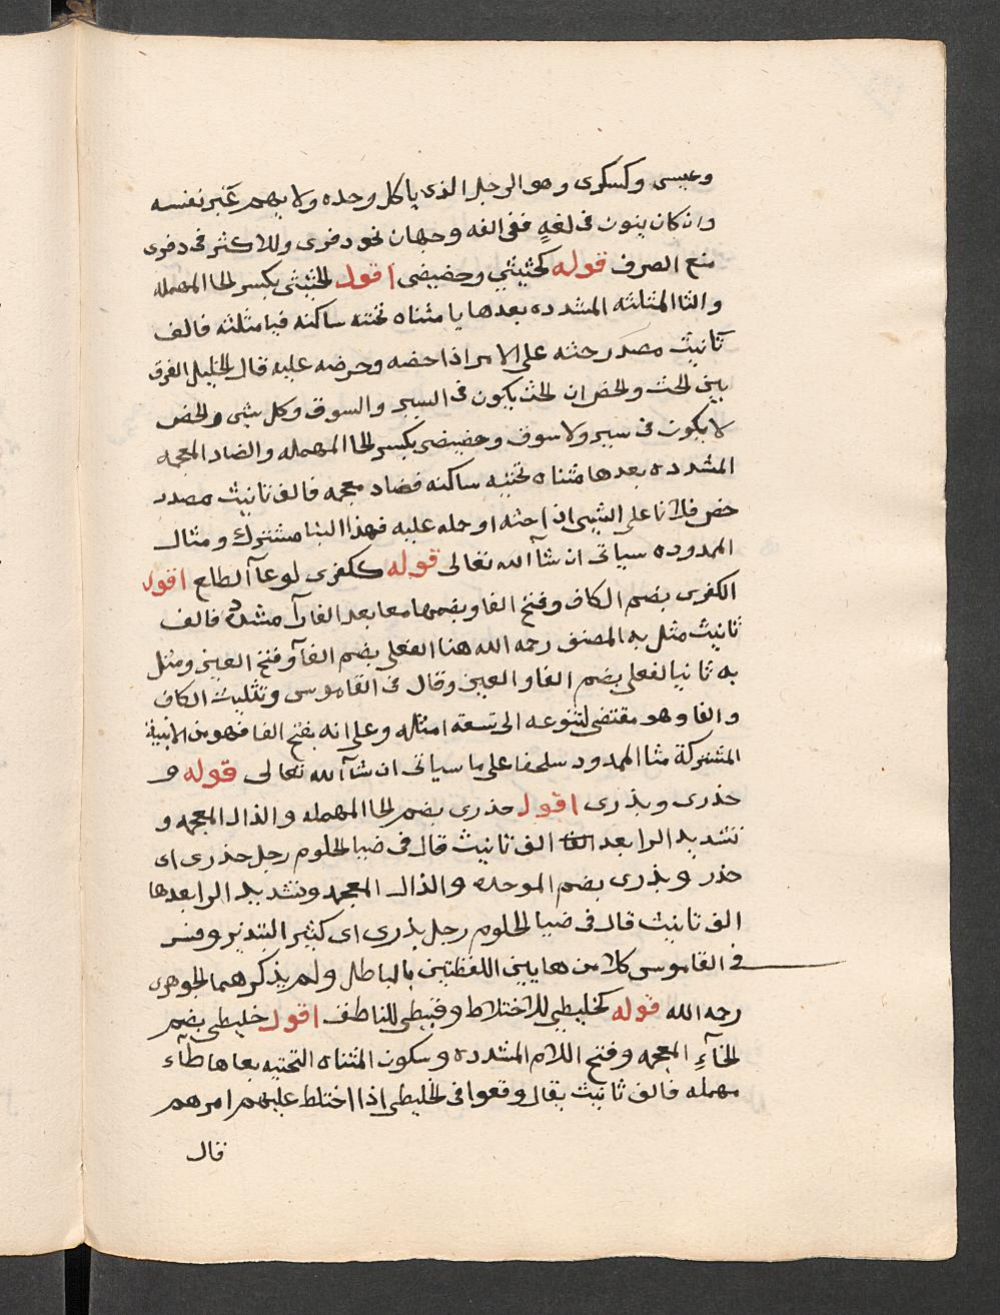 وعيسى وكسكرى وهو الرجل الذى ياكل وحده ولا يهمر غير نفسه
وان كان ينون فى لغةٍ ففى الفه وجهان نحو دفرى وللاكثر فى دفرى
منع الصرف قوله كحثيثى وحضيضى اقول الحثيثى بكسر الحا المهمله
والثا المثلثه المشدده بعدها يا مثناه تحتيه ساكنه فيا مثلثه فالف
تانيث مصدر حثه على الامر اذا حضه وحرضه عليه قال الخليل الفرق
بين الحث والحض ان الحث يكون فى السير والسوق وكل شى والحض
لا يكون فى سير ولا سوق وحضيضى بكسر الحا المهمله والضاد المعجمه
المشدده بعدها مثناه تحتيه ساكنه فضاد معجمه فالف تانيث مصدر
حض فلانا على الشى اذا حثه او حمله عليه فهذا البنا مشترك ومثال
الممدوده سياتى ان شآ الله تعالى قوله ككفرى لوعآ الطلع اقول
الكفرى بضم الكاف وفتح الفا وبضمها معا بعد الفا رآ مشدده فالف
تانيث مثل به المصنف رحمه الله هنا الفعلى بضم الفآ وفتح العين ومثل
به ثانيا لفعلى بضم الفا والعين وقال فى القاموس وتثليث الكاف
والفا وهو مقتضى لتنوعه الى تسعه امثله وعلى انه بفتح الفا فهو من الابنية
المشتركة مثا الممدود سلحفا على ما سياتى ان شآ الله تعالى قوله و
حذرى وبذرى اقول حذرى بضم الحا المهمله والذال المعجمه و
تشديد الرا بعد الفا الف تانيث قال فى ضيا الحلوم رجل حذرى اى
حذر وبذرى بضم الموحده والذال المعجمه وتشديد الرا بعدها
الف تانيث قال فى ضيا الحلوم رجل بذرى اى كثير التبذير وفسر
فى القاموس كلا من هايين اللفظتين بالباطل ولم يذكرهما الجوهرى
رحمه الله قوله كخليطى للاختلاط وقبيطى للناطف اقول خليطى بضم
الخآءِ المعجمه وفتح اللام المشدده وسكون المثناه التحتيه بعاها طآء
مهمله فالف تانيث يقال وقعوا فى الخليطى اذا اختلط عليهم امرهم
قال